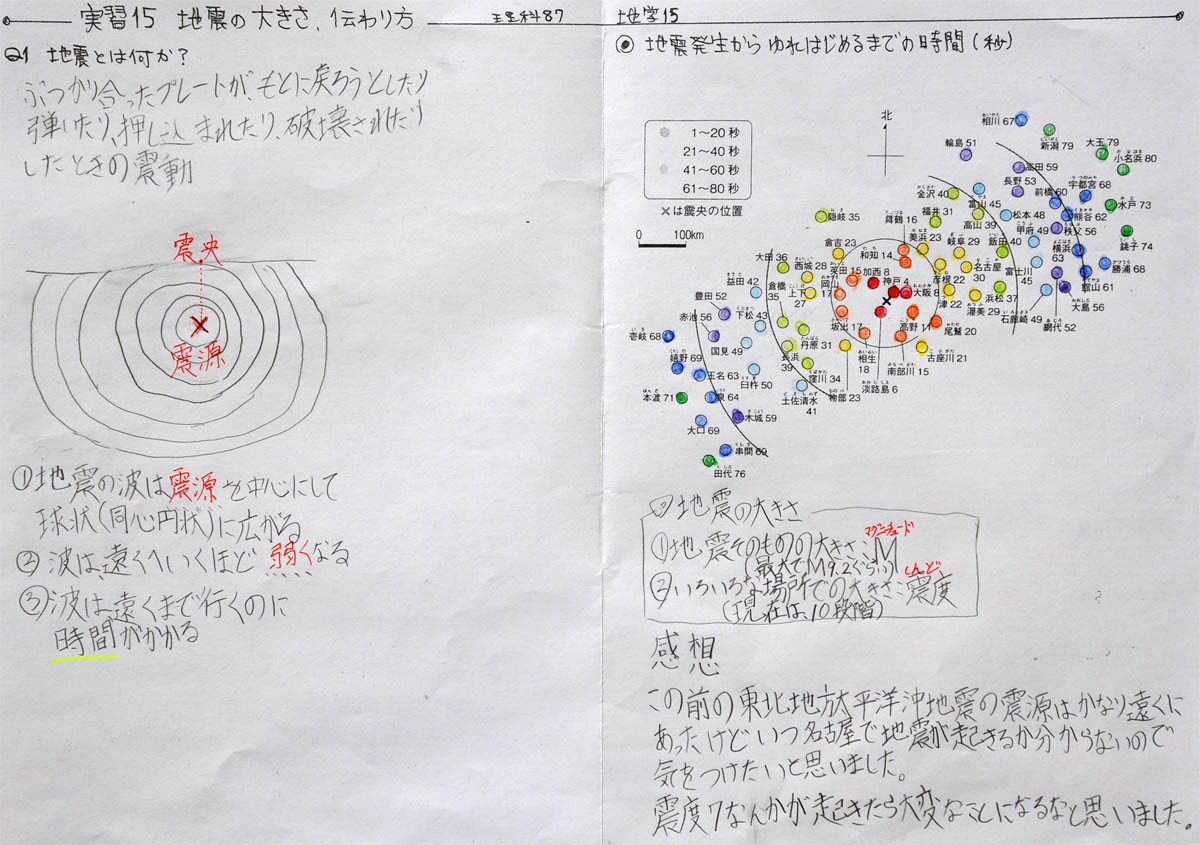 実習15 地震の大きさ、伝わり方
理科87
Q1 地震とは何か?
ぶつかり合ったプレートが、もとに戻ろうとしたり
弾いたり、押し込まれたり、破壊されたり
したときの震動
震央
震源
①地震の波は震源を中心にして
球状(同心円状)に広がる
②波は、遠くへいくほど弱くなる
③波は遠くまで行くのに
時間がかかる
地学15
◎ 地震発生から ゆれはじめるまでの時間(秒)
1〜20 秒
21〜40 秒
41〜60 秒
61〜80 秒
×は震央の位置
0 100km
北
相川 67
新潟 79
大玉 79
小名浜 80
輪島 51
高田 59
長野 53
前橋 60
宇都宮 68
水戸 73
金沢 40
富山 45
松本 48
熊谷 62
秩父 56
銚子 74
隠岐 35
舞鶴 16
福井 31
高山 39
甲府 49
横浜 63
勝浦 68
倉吉 23
和知 14
美浜 23
岐阜 29
飯田 40
館山 61
大田 36
西城 28
英田 15
加西 8
神戸 4
彦根 22
名古屋 30
富士川 45
大島 56
益田 42
倉橋 35
上下 27
岡山 17
大阪 8
津 22
浜松 37
網代 52
豊田 52
下松 43
坂出 17
高野 11
尾鷲 20
渥美 29
石廊崎 49
赤池 56
国見 49
丹原 31
相生 18
古座川 21
壱岐 68
嬉野 69
長浜 39
南部川 15
玉名 63
臼杵 50
窪川 34
物部 23
淡路島 6
本渡 71
泉 64
土佐清水 41
大口 69
木城 59
串間 69
田代 76
地震の大きさ
①地震そのものの大きさ:M
マグニチュード
(最大でM9.2ぐらい)
②いろいろな場所での大きさ:震度
しんど
(現在は、10段階)
感想
この前の東北地方太平洋沖地震の震源はかなり遠くに
あったけどいつ名古屋で地震が起きるか分からないので
気をつけたいと思いました。
震度7なんかが起きたら大変なことになるなと思いました。